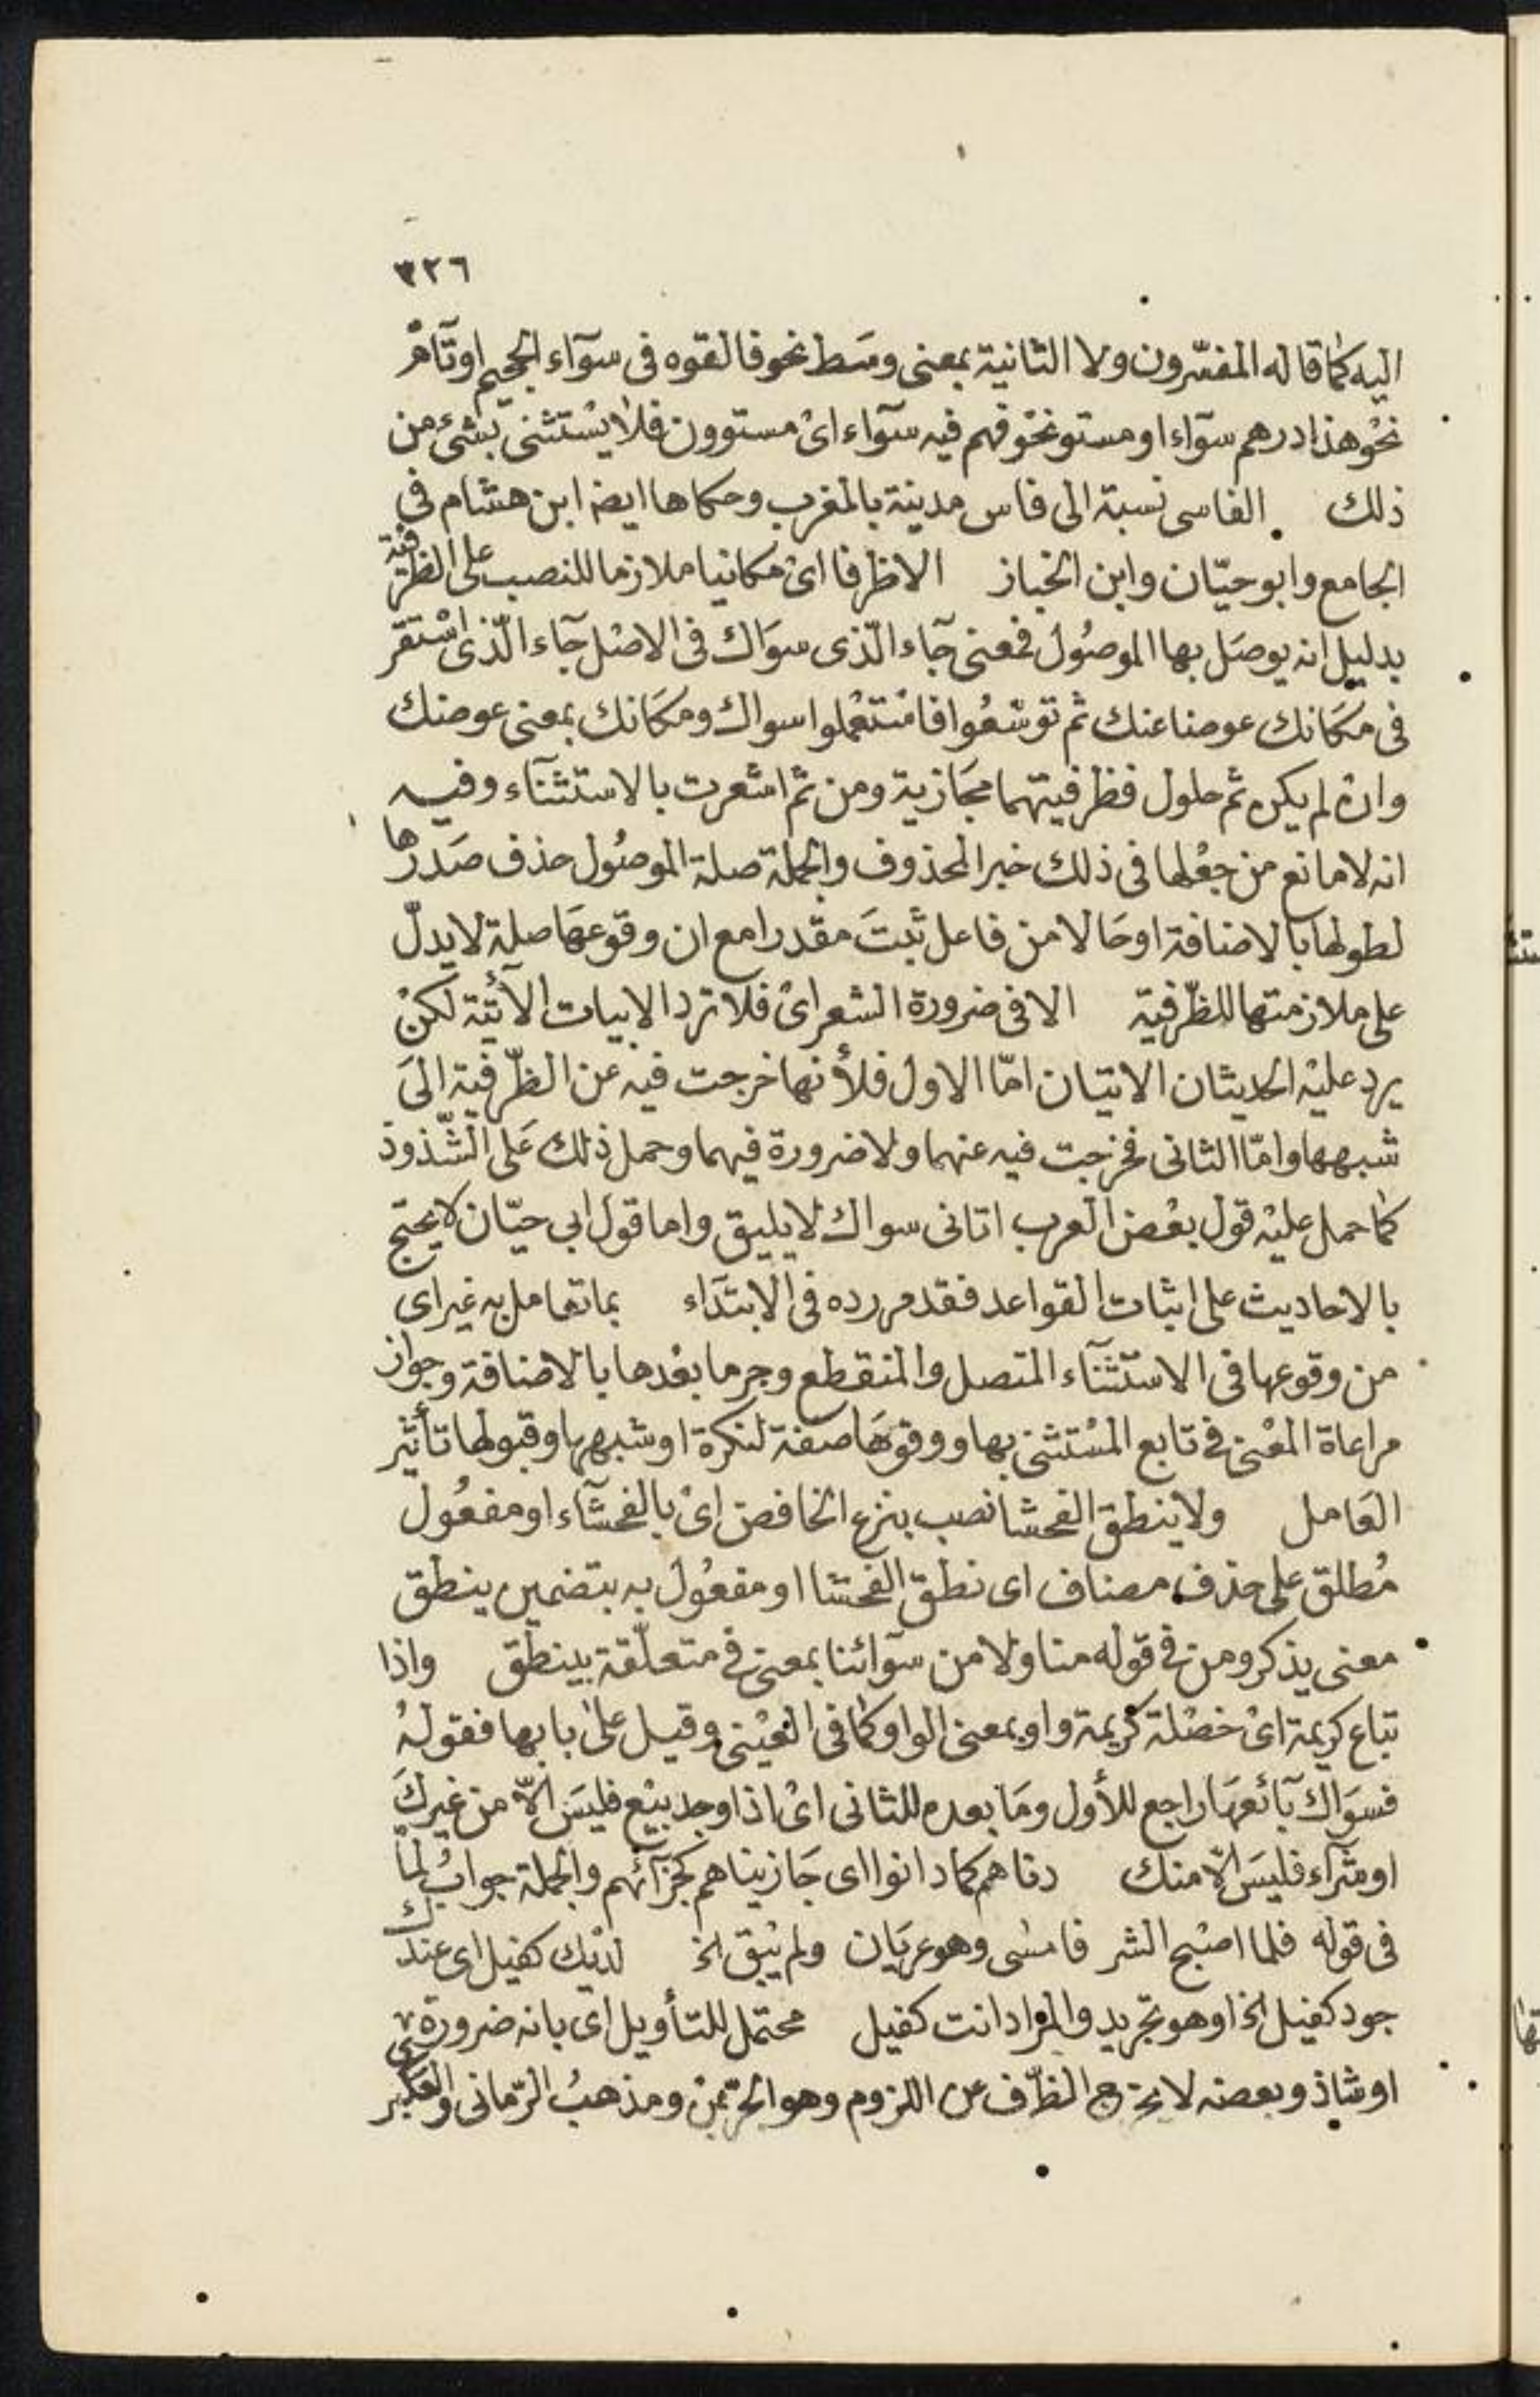 ٣٢٦
اليه كما قاله المفسّرون ولا الثانية بمعنى وسَط نحو فالقوه فى سوآء الجحيم او تآمّ
نحْو هذا درهم سوآء او مستو نحْو فهم فيه سوآء اىْ مستوون فلا يسْتثنى بشئ من
ذلك الفاسى نسبة الى فاس مدينة بالمغرب وحكاها ايضا ابن هشام فى
الجامع وابو حيّان وابن الخباز الاظرفا اىْ مكانيا ملازما للنصب على الظرفية
بدليل انه يوصَل بها الموصُول فمعنى جآء الّذى سوَاك فى الاصْل جآء الّذى اسْتقر
فى مكَانك عوضا عنك ثم توسّعُوا فاسْتعْملوا سواك ومكَانك بمعنى عوضك
وان لم يكن ثم حلول فظرفيتهما مجَازية ومن ثم اشعرت بالاستثنآء وفيه
انه لا مانع من جعْلها فى ذلك خبر المحذوف والجملة صلة الموصُول حذف صَدرها
لطولها بالاضافة او حَالا من فاعل ثبتَ مقدرا مع ان وقوعهَا صلة لا يدلّ
على ملازمتها للظّرفية الا فى ضرورة الشعر اىْ فلا ترد الابيات الآتية لكنْ
يرد عليْه الحديثان الاتيان امّا الاول فلأنها خرجت فيه عن الظّرفية الىَ
شبهها وامّا الثانى فخرجت فيه عنهما ولا ضرورة فيهما وحمل ذلك عَلى الشّذوذ
كما حمل عليْه قول بعْض العرب اتانى سواك لا يليق واما قول ابى حيّان لا يحتج
بالاحاديث على اثبات القواعد فقد مر رده فى الابتدَاء بما تعامل به غير اى
من وقوعها فى الاستثنآء المتصل والمنقطع وجر ما بعْدها بالاضافة وجواز
مراعاة المعْنى فى تابع المسْتثنى بها ووقوعهَا صفة لنكرة او شبهها وقبولها تأثير
العَامل ولا ينطق الفحشا نصب بنزع الخافض اىْ بالفحشآء او مفعُول
مُطلق على حذف مضاف اى نطق الفحشا او مفعُول به بتضمين ينطق
معنى يذكر ومن فى قوله منا ولا من سوآئنا بمعنى فى متعلّقة بينطق واذا
تباع كريمة اىْ خصْلة كريمة واو بمعنى الواو كما فى العيْنى وقيل علىٰ بابها فقولهُ
فسوَاك بآئعهَا راجع للأول ومَا بعده للثانى اىْ اذا وجد بيْع فليسَ الاّ من غيركَ
او شرآء فليسَ الاّ منك دناهم كما دانوا اى جَازيناهم كجزآئهم والجملة جوابُ لمّا
فى قوله فلما اصْبح الشر فامسٰى وهو عريَان ولم يبْق الخ لديْك كفيل اى عندك
جود كفيل الخ او هو تجريد والمرَاد انت كفيل محتمل للتأويل اى بانه ضرورة
او شاذ وبعضه لا يخرج الظّرف عن اللزوم وهو الجرّ بمنْ ومذهبُ الرّمانى والعكبرى